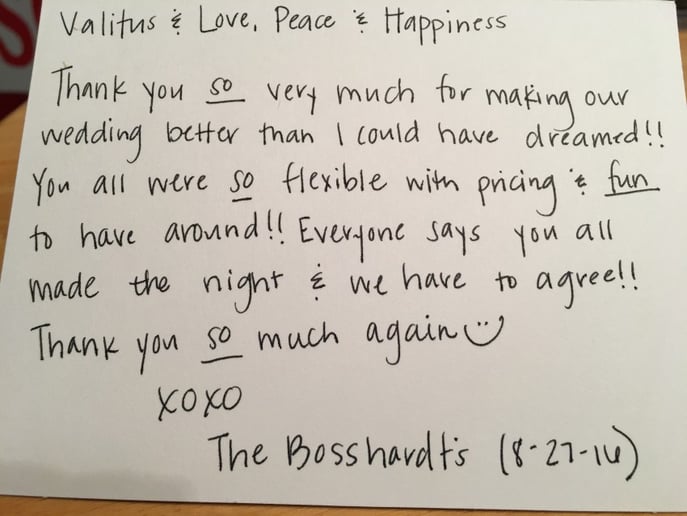 Valitus & Love, Peace & Happiness
Thank you so very much for making our
wedding better than I could have dreamed!!
You all were so flexible with pricing & fun
to have around!! Everyone says you all
made the night & we have to agree!!
Thank you so much again
xoxo
The Bosshardt's (8-27-16)